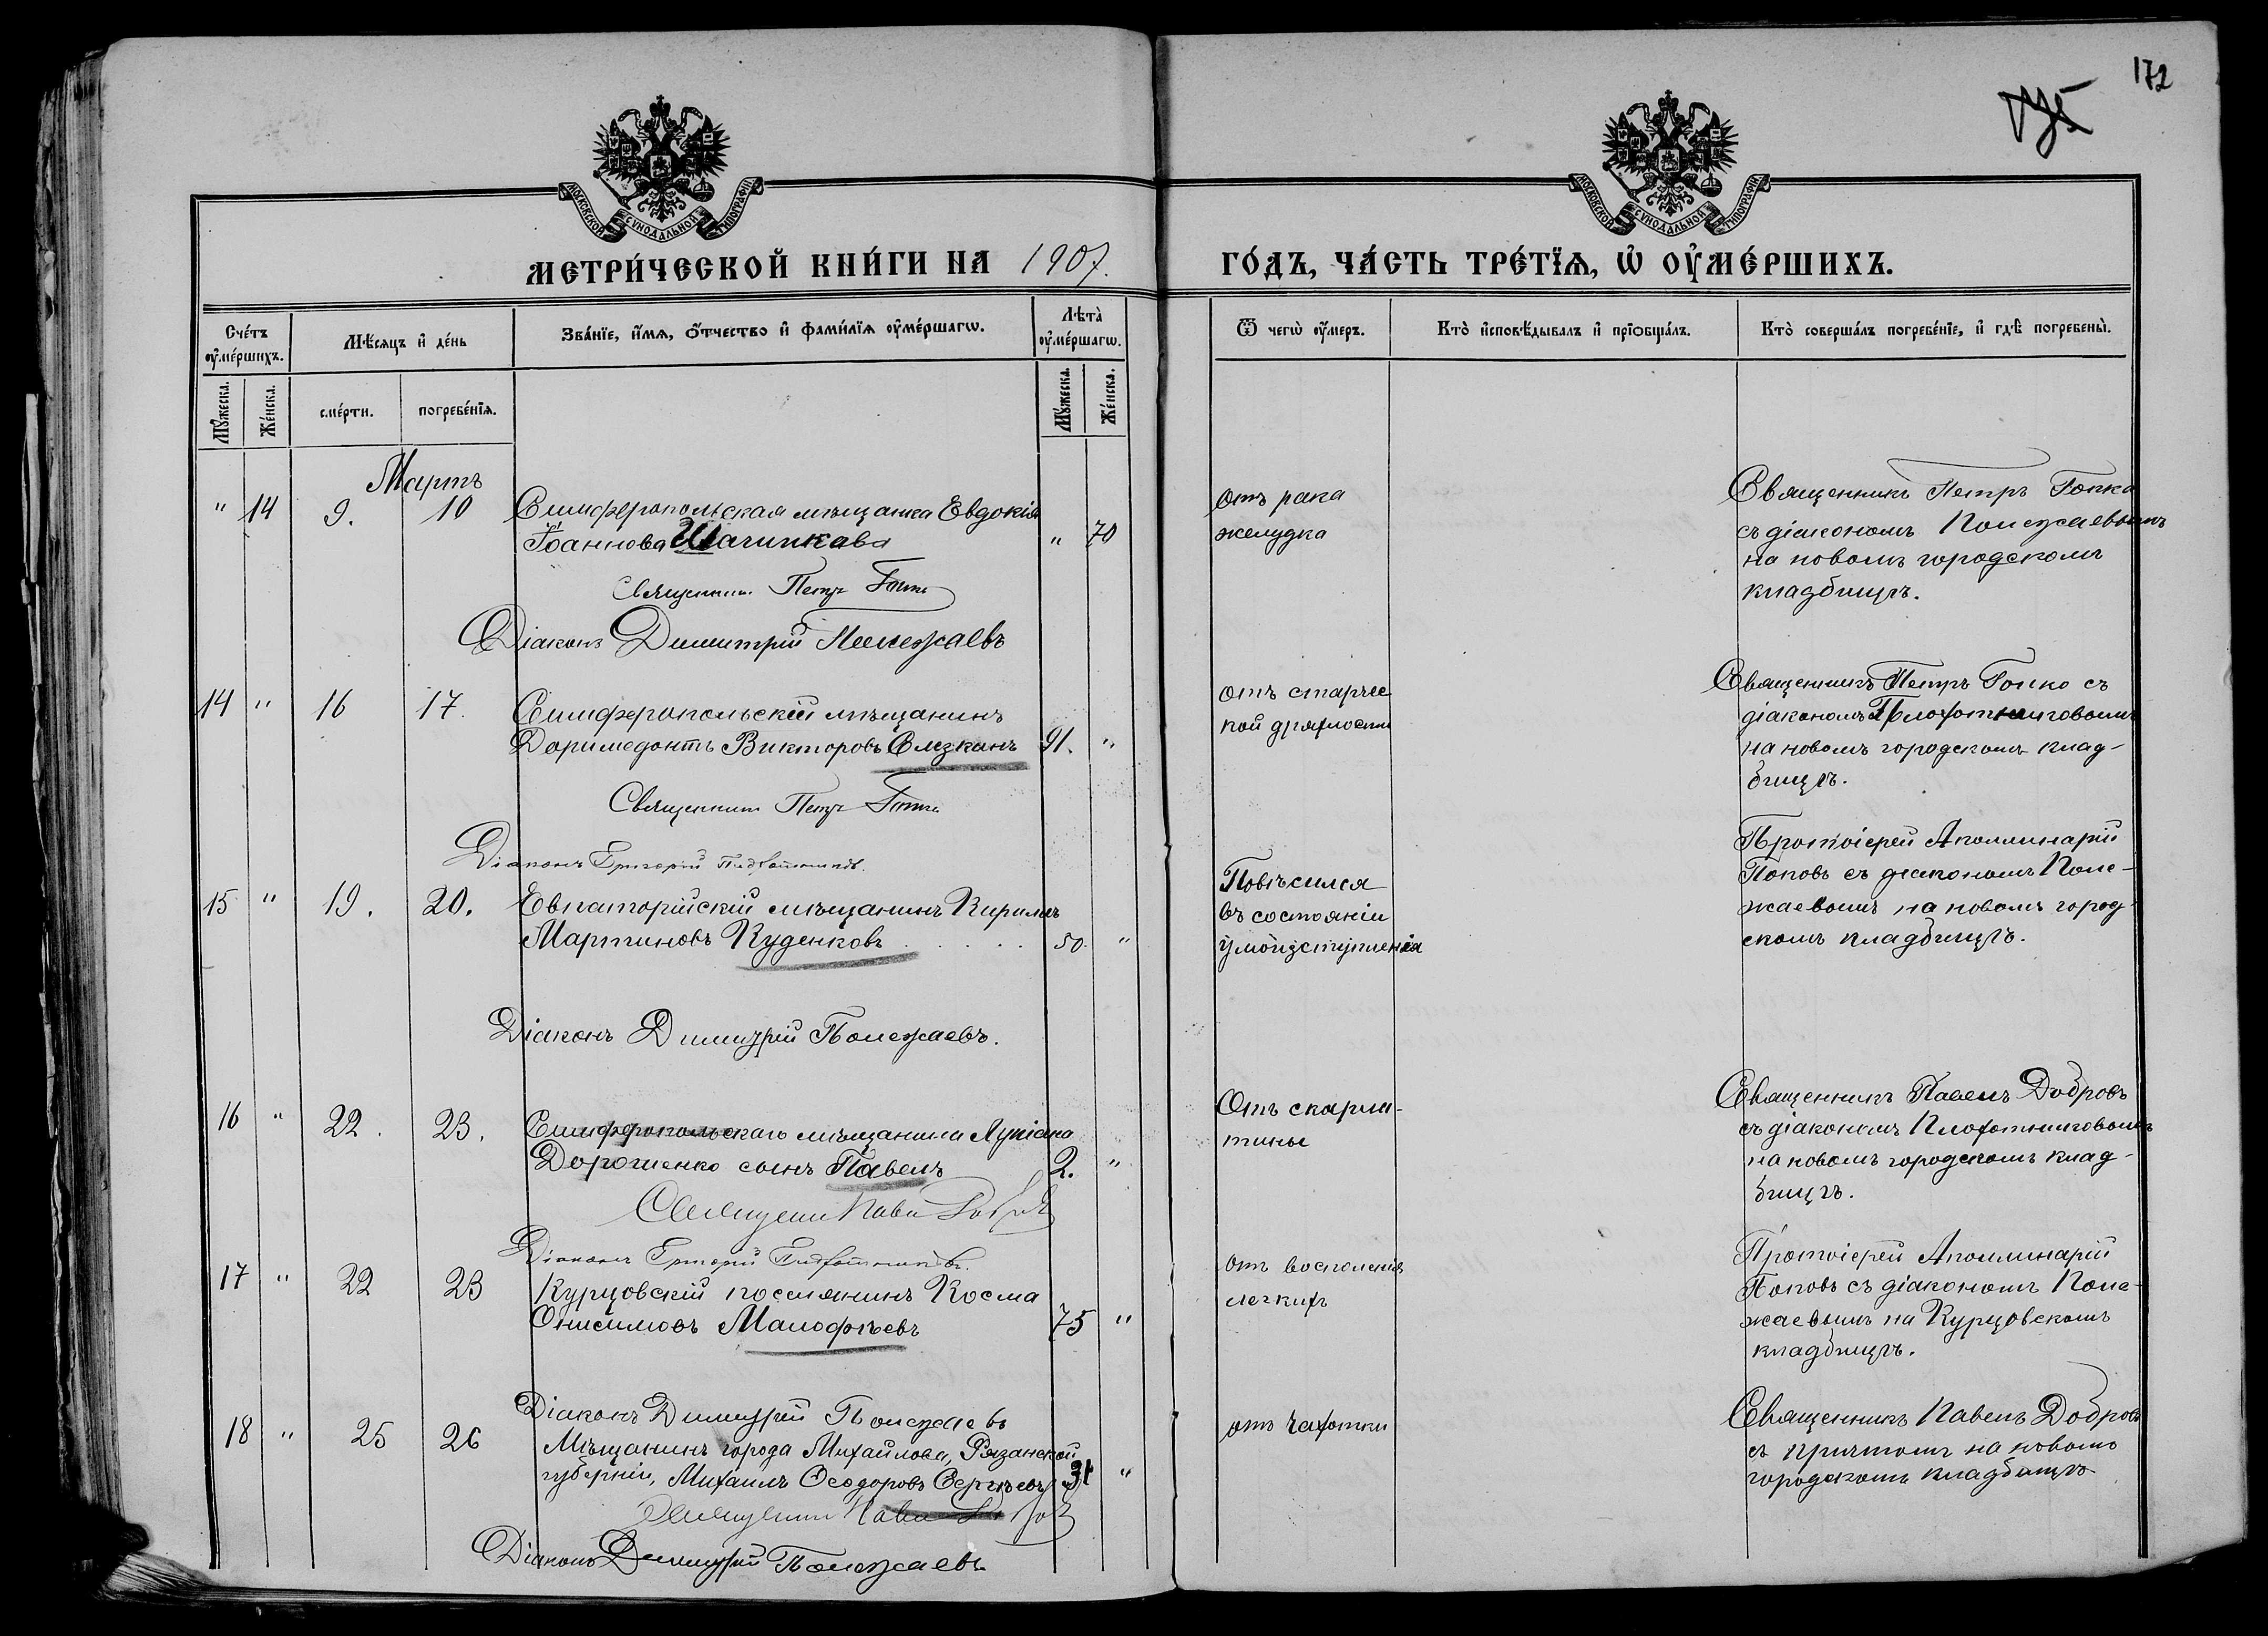 172
МОСКОВСКОЙ СУНОДАЛЬНОЙ ТИПОГРАФІИ
МОСКОВСКОЙ СУНОДАЛЬНОЙ ТИПОГРАФІИ
МЕТРИ́ЧЕСКОЙ КНИ́ГИ НА 1907.
ГО́ДЪ, ЧА́СТЬ ТРЕ́ТЇѦ, Ѡ҆ ОУ҆МЕ́РШИХЪ.
Сче́тъ оу҆ме́ршихъ.
Мѣ́сяцъ и҆ де́нь
Зва́нїе, и҆́мѧ, ѻ҆́тчество и҆ фами́лїѧ оу҆ме́ршагѡ.
Лѣта̀ оу҆ме́ршагѡ.
Ѿ чегѡ̀ оу҆́меръ.
Кто̀ и҆сповѣ́дывалъ и҆ прїѻбща́лъ.
Кто̀ соверша́лъ погребе́нїе, и҆ гдѣ̀ погребены̀.
Мꙋ́жеска.
Же́нска.
сме́рти.
погребе́нїѧ.
Мꙋ́жеска.
Же́нска.
Мартъ
" 14 9. 10 Симферопольская мѣщанка Евдокія
Іоаннова " 70
Священникъ Петръ Гопко
Діаконъ Димитрій Полежаевъ
отъ рака
желудка
Священникъ Петръ Гопко
съ діакономъ Полежаевымъ
на новомъ городскомъ
кладбищѣ.
14 " 16 17. Симферопольскій мѣщанинъ
Доримедонтъ Викторовъ Слезкинъ 91. "
Священникъ Петръ Гопко
Діаконъ Григорій Плохотниковъ.
отъ старчес
кой дряхлости
Священникъ Петръ Гопко съ
діакономъ Плохотниковымъ
на новомъ городскомъ клад-
бищѣ.
15 " 19. 20. Евпаторійскій мѣщанинъ Кириллъ
Мартиновъ Куденковъ 50. "
Діаконъ Димитрій Полежаевъ.
Повѣсился
въ состояніи
умоизступленія
Протоіерей Аполлинарій
Поповъ съ діакономъ Поле-
жаевымъ на новомъ город-
скомъ кладбищѣ.
16 " 22. 23. Симферопольскаго мѣщанина Лукіана
Дорошенко сынъ Павелъ 2. "
Священникъ Павелъ Добровъ
Діаконъ Григорій Плохотниковъ.
Отъ скарла-
тины
Священникъ Павелъ Добровъ
съ діакономъ Плохотниковымъ
на новомъ городскомъ клад-
бищѣ.
17 " 22 23 Курцовскій поселянинъ Косма
Онисимовъ Малофѣевъ 75 "
Діаконъ Димитрій Полежаевъ
отъ воспаленія
легкихъ
Протоіерей Аполлинарій
Поповъ съ діакономъ Поле-
жаевымъ на Курцовскомъ
кладбищѣ.
18 " 25 26 Мѣщанинъ города Михайлова, Рязанской
губерніи, Михаилъ Ѳеодоровъ Сергѣевъ 31 "
Священникъ Павелъ Добровъ
Діаконъ Димитрій Полежаевъ
отъ чахотки
Священникъ Павелъ Добровъ
съ причтомъ на новомъ
городскомъ кладбищѣ